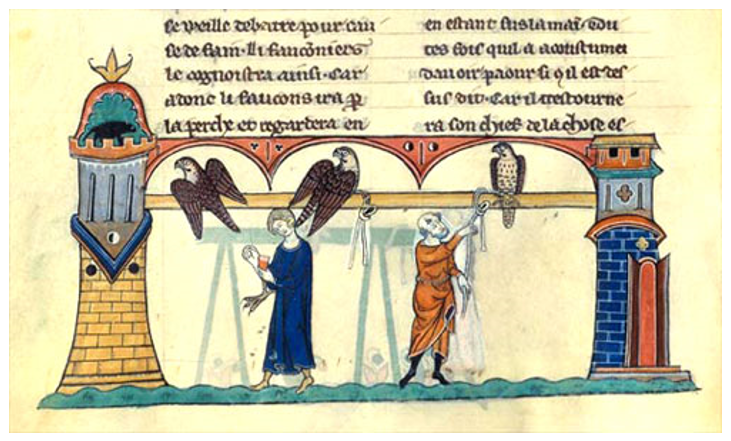 se veille debatre pour cau
se de faim. li fauconiers
le cognoistra ainsi. Car
adonc li faucons ira ꝑ
la perche et regardera en
en estant sus la maī. Tou
tes fois quil a acoustumei
dauoir paour si q̄ il est des
sus dit. Car il trestourne
ra son chief de la chose es